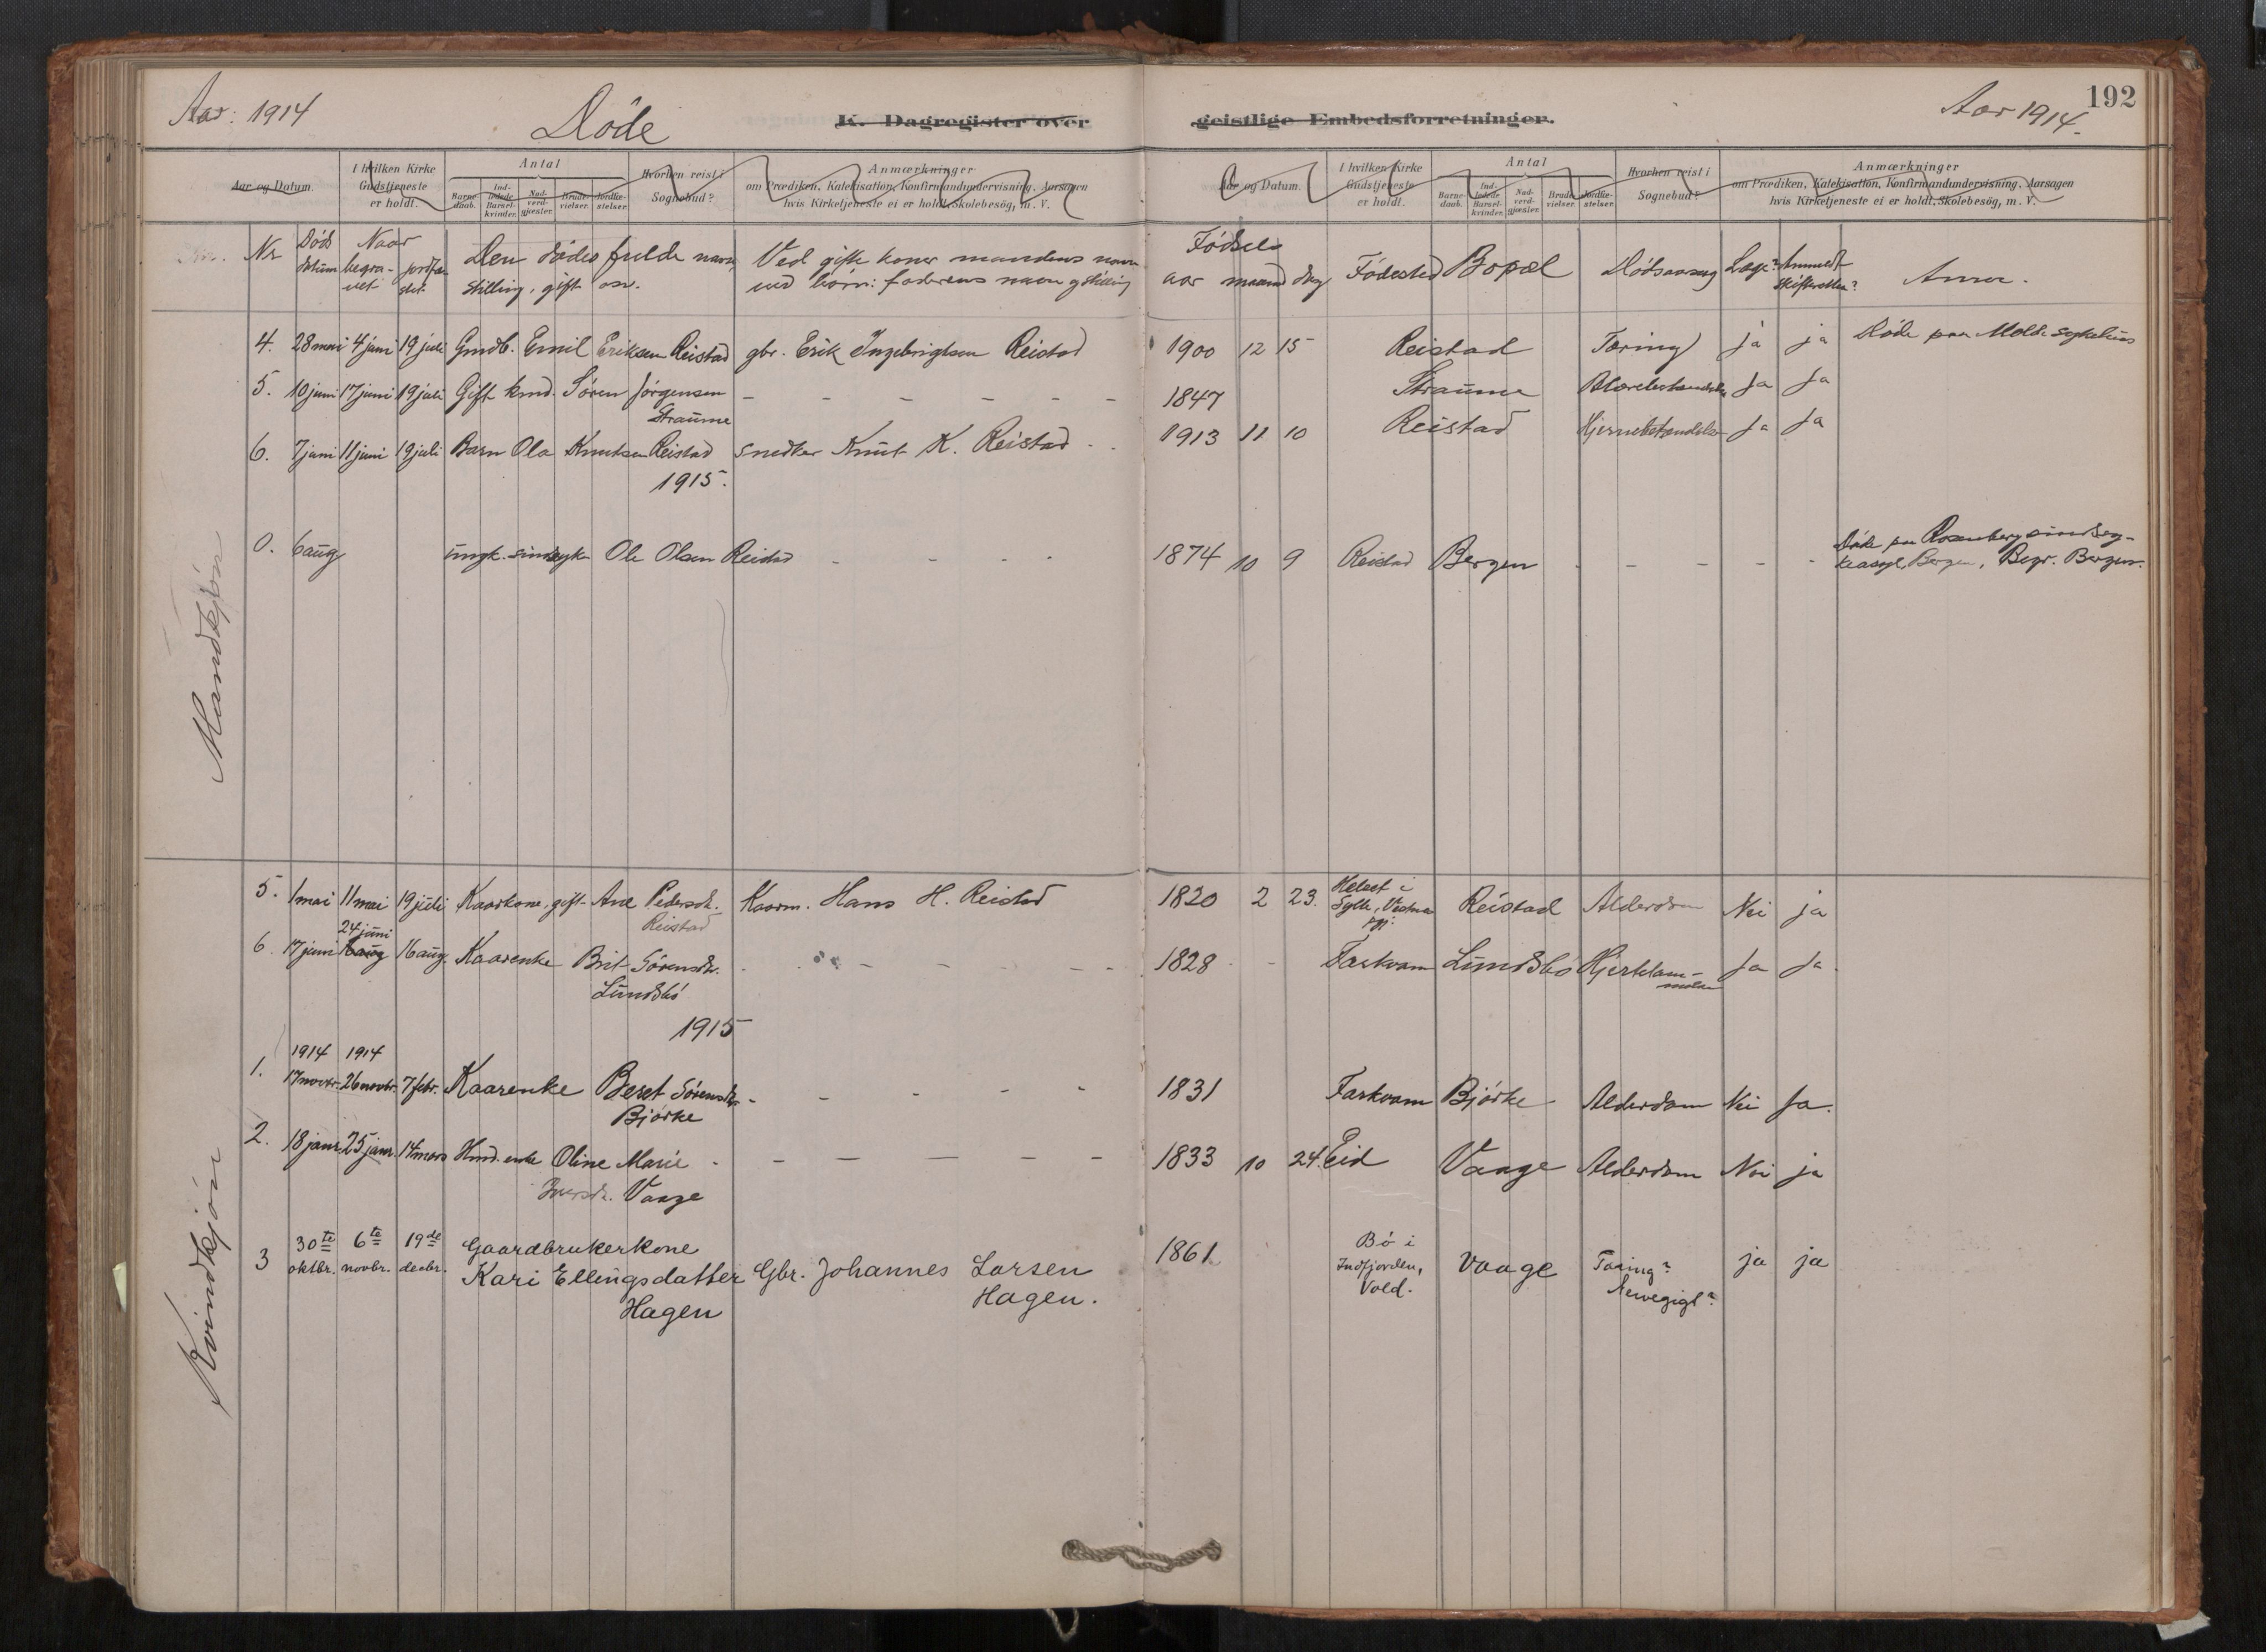 Aar: 1914
Döde
K. Dagregister over geistlige Embedsforretninger.
Aar 1914.
192
Aar og Datum.
I hvilken Kirke Gudstjeneste er holdt.
Antal
Barne-daab.
Ind-ledede Barsel-kvinder.
Nad-verd-gjester.
Brude-vielser.
Jordfæ-stelser.
Hvorhen reist i Sognebud?
Anmærkninger
om Prædiken, Katekisation, Konfirmandundervisning, Aarsagen
hvis Kirketjeneste ei er holdt, Skolebesög, m. V.
Aar og Datum.
I hvilken Kirke Gudstjeneste er holdt.
Antal
Barne-daab.
Ind-ledede Barsel-kvinder.
Nad-verd-gjæster.
Brude-vielser.
Jordfæ-stelser.
Hvorhen reist i Sognebud?
Anmærkninger
om Prædiken, Katekisation, Konfirmandundervisning, Aarsagen
hvis Kirketjeneste ei er holdt, Skolebesög, m. V.
Nr
Döds datum
Naar begra-vet
jordfæ-stet
Den dödes fulde navn, stilling, gift osv.
Ved gifte koner mandens navn
ved börn: faderens navn og stilling
Födsels
aar maaned dag
Födested
Bopæl
Dödsaarsag
Læge?
Anmeldt skifteretten?
Anm.
Mandkjön
4. 28 mai 4 juni 19 juli Gmdb. Emil Eriksen Reistad gbr. Erik Ingebrigtsen Reistad 1900 12 15 Reistad Tæring ja ja Döde paa Molde sykehus
5. 10 juni 17 juni 19 juli Gift kmd. Sören Jörgensen - - - - - - 1847 Straume Ja Ja
Straume
6. 7 juni 11 juni 19 juli Barn Ola Knutsen Reistad Snedker Knut K. Reistad - 1913 11 10 Reistad Hjernebetændelse Ja Ja
1915.
0. 6 aug ungk. sindssyk Ole Olsen Reistad - - - - 1874 10 9 Reistad Bergen - - - - - Döde paa Rosenberg sindssy-
keasyl, Bergen, Begr. Bergen.
Kvindkjön
5. 1 mai 11 mai 19 juli Kaarkone, gift Ane Pedersdt. Kaarm. Hans H. Reistad 1820 2 23. i Sylte, Vestnes pgj. Reistad Alderdom Nei ja
Reistad
24 juni
6. 17 juni 16 aug 16 aug. Kaarenke Brit Sörensdt. - - - - - - 1828 - - Farkvam Lundsbö Hjertelam- Ja Ja.
Lundsbö melse
1915
1914 1914
1. 17 novbr. 26 novbr. 7 febr. Kaarenke Beret Sörensdt. - - - - - 1831 Farkvam Björke Alderdom Nei Ja.
Björke
2. 18 janr. 25 janr. 14 mars Hmd. enke Oline Marie - - - - - - 1833 10 24. Eid Vaage Alderdom Nei ja
Iversdt. Vaage
3 30te oktbr. 6te novbr. 19de decbr. Gaardbrukerkone
Kari Ellingsdatter Gbr. Johannes Larsen 1861. Bö i Indfjorden, Vold. Vaage Tæring? ja ja
Hagen Hagen.